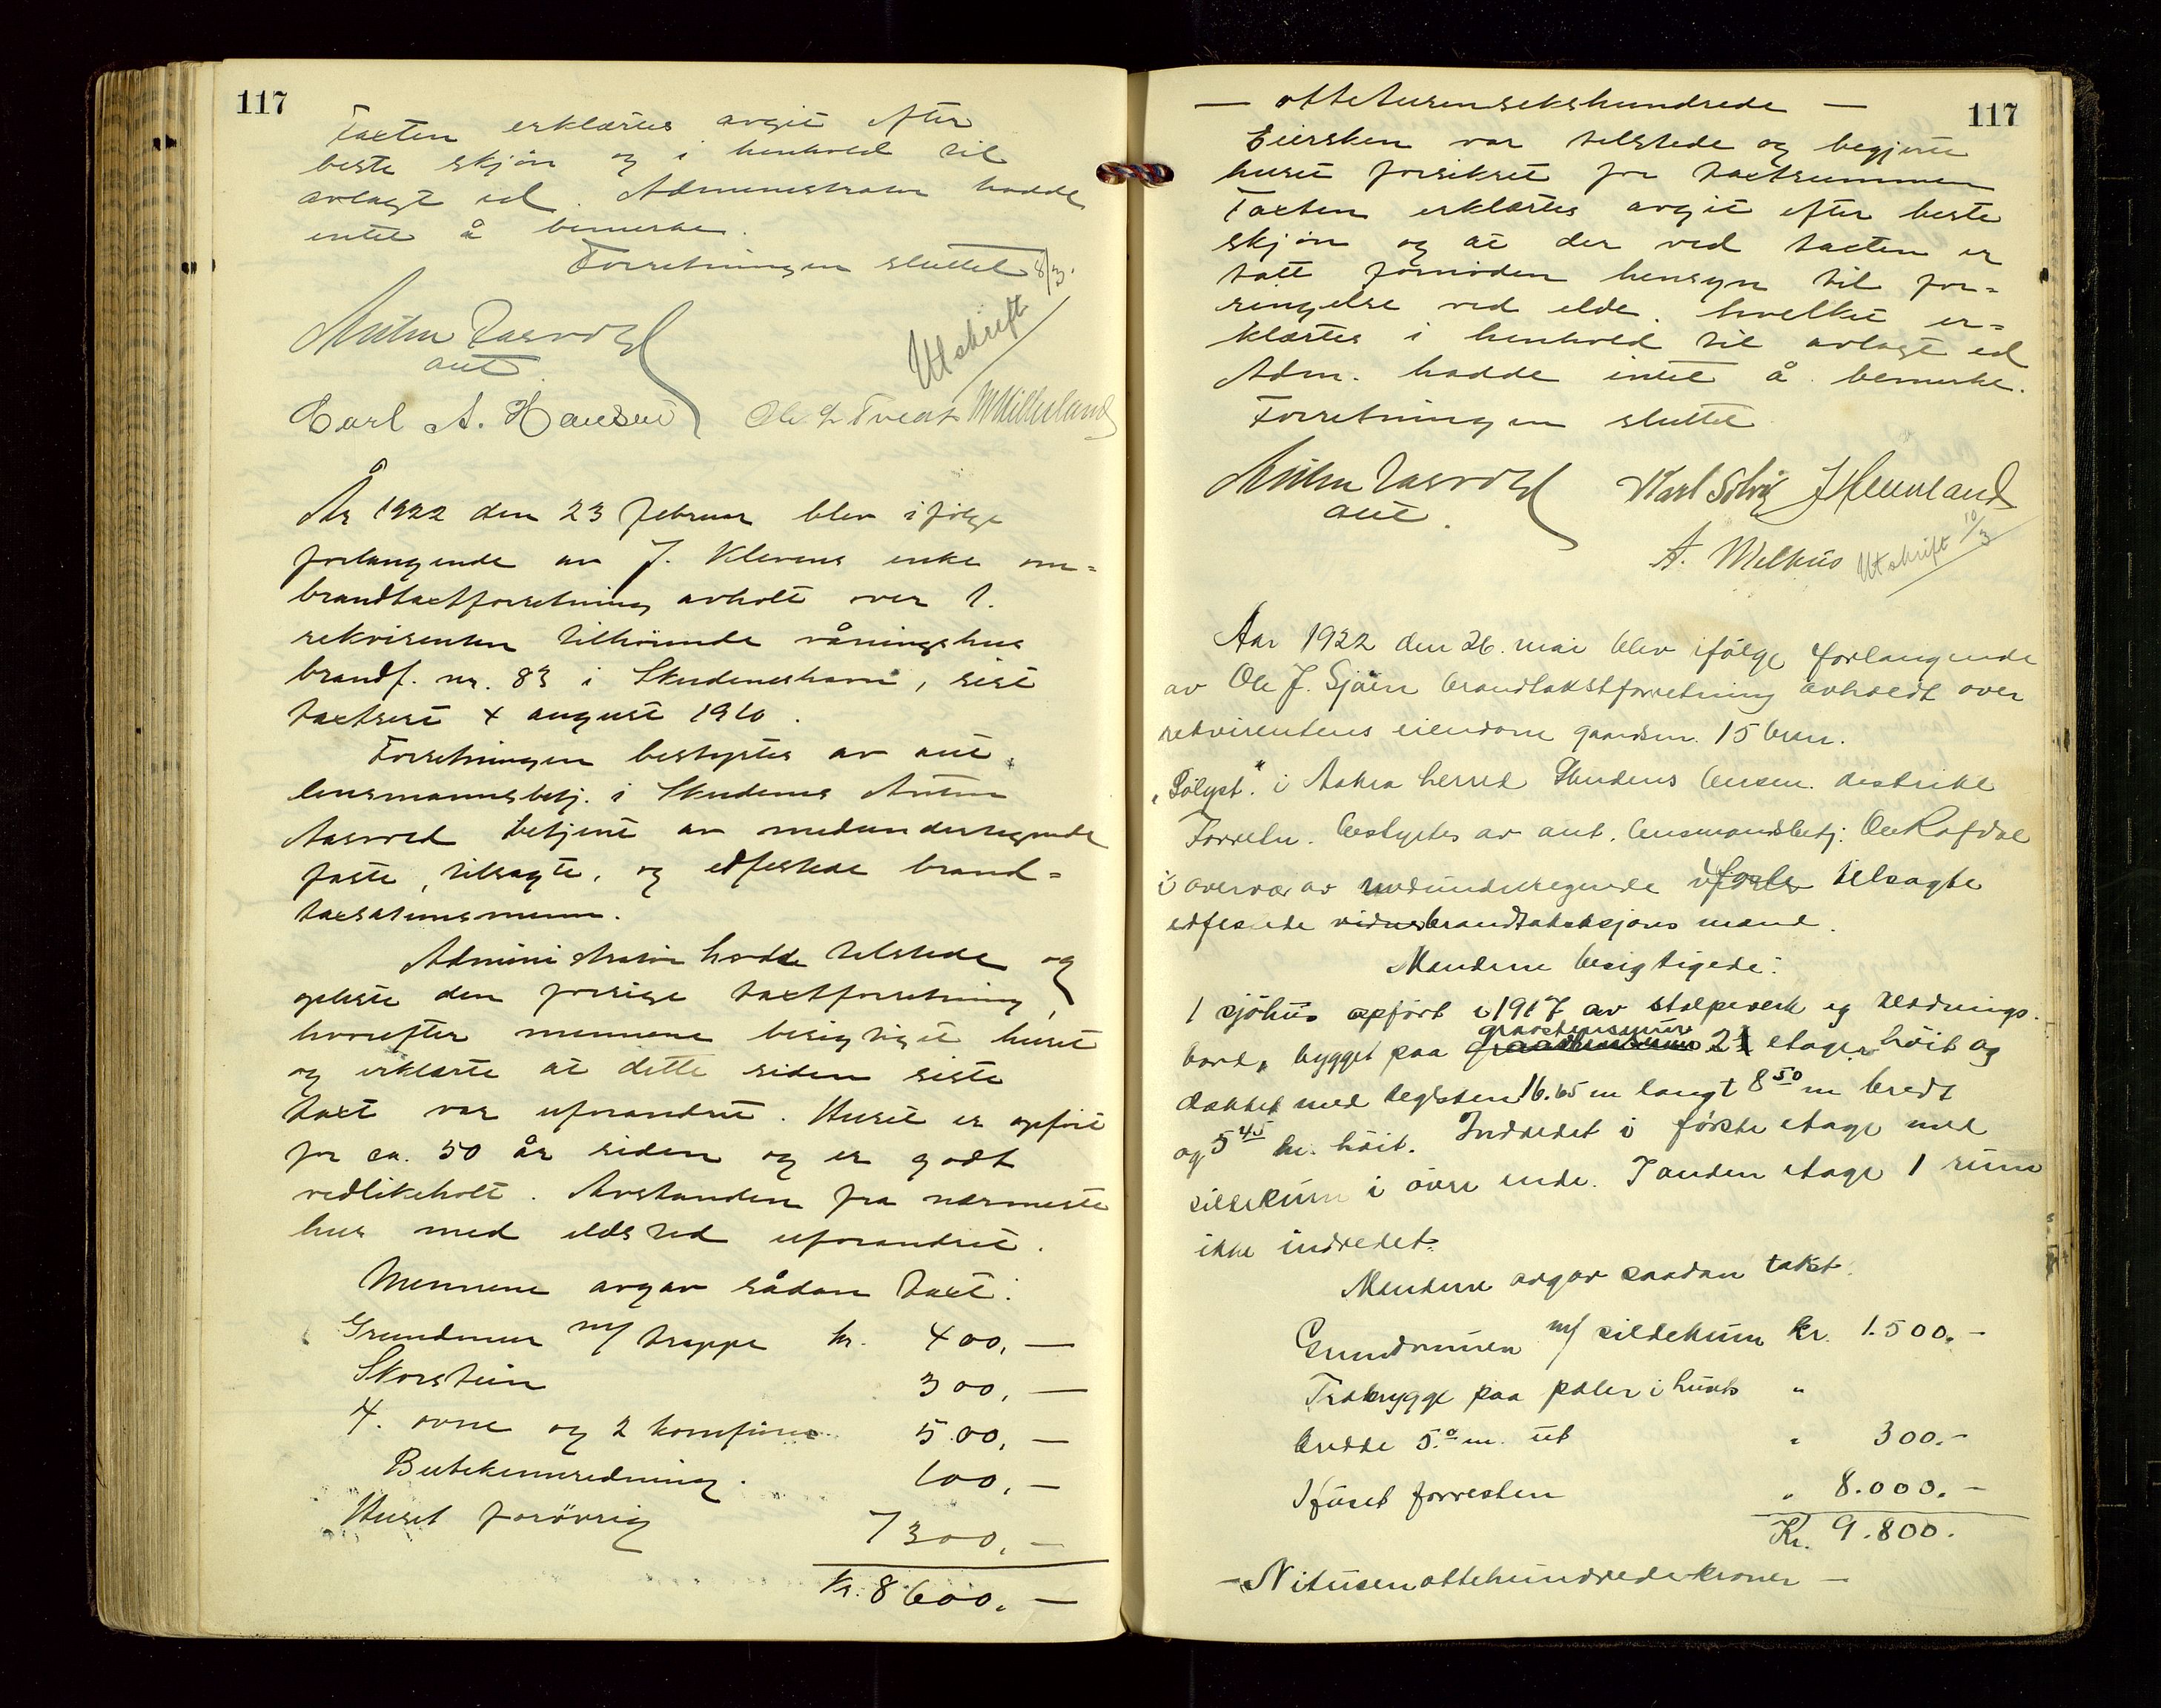 117
Taxten erklærtes avgit efter
beste skjön og i henhold til
avlagt ed. Administrator hadde
intet å bemerke.
Forretningen sluttet
8/3.
Utskrift
aut
Carl A. Hansen Ole L Tveit
År 1922 den 23 februar blev ifölge
forlangende av J. Klevens enke om=
brandtaxtforretning avholt over 1.
rekvirenten tilhörende våningshus
brandf. nr. 83 i Skudeneshavn, sist
taxtsert 4 august 1910.
Forretningen bestyrtes av aut.
lensmannsbetj. i Skudenes Anton
Aasvold betjent av medundertegnede
faste, tilsagte, og edfestede brand=
taxsationsmenn.
Administrator hadde tilstede og
oplæste den forrige taxtforretning,
hvorefter mennene besigtiget huset
og erklærte at dette siden siste
taxt var uforandret. Huset er opfört
for ca. 50 år siden og er godt
vedlikeholt. Avstanden fra nærmeste
hus med ildsted uforandret.
Mennene avgav sådan taxt:
Grundmur m/ trappe kr. 400,—
Skorstein 300,—
4. ovne og 2 komfürer 500,—
Butikinnredning. 100,—
Huset forövrig 7300,—
Kr. 8600,—
117
— ottetusensekshundrede —
Eiersken var tilstede og begjærte
huset forsikret for taxtsummen
Taxten erklærtes avgit efter beste
skjön og at der ved taxten er
tatt fornöden hensyn til for=
ringelse ved elde. hvilket er=
klærtes i henhold til avlagt ed
Adm. hadde intet å bemerke.
Forretningen sluttet
aut.
Karl Solvig
A. Melhus Utskrift 10/3
Aar 1922 den 26. mai blev ifölge forlangende
av Ole J. Sjöen brandtakstforretning avholdt over
rekvirentens eiendom gaardsnr. 15 brnr.
"Sölyst". i Aakra herred Skudenes lensm. distrikt
Forretn. bestyrtes av aut. lensmandsbetj. Ole Rafdal
i overvær av medundertegnede faste tilsagte
edfestede vidnes brandtakstsjons mænd.
Mændene besigtigede:
1 sjöhus opfört i 1917 av stolpeverk og klædnings.
bord, bygget paa
graastensmur
2 etager höit og
dækket med teglsten 16.65 m langt 8 50 m bredt
og 5 45 m. höit. Indredet i förste etage med
sildekum i övre ende. I anden etage 1 rum
ikke indredet.
Mændene avgav saadan takst.
Grundmuren m/ sildekum kr. 1.500.-
Træbrygge paa pæler i husets "
bredde 5.0 m. ut " 300.-
Huset forresten " 8.000.-
Kr. 9.800.
- Nitusenottehundredekroner -